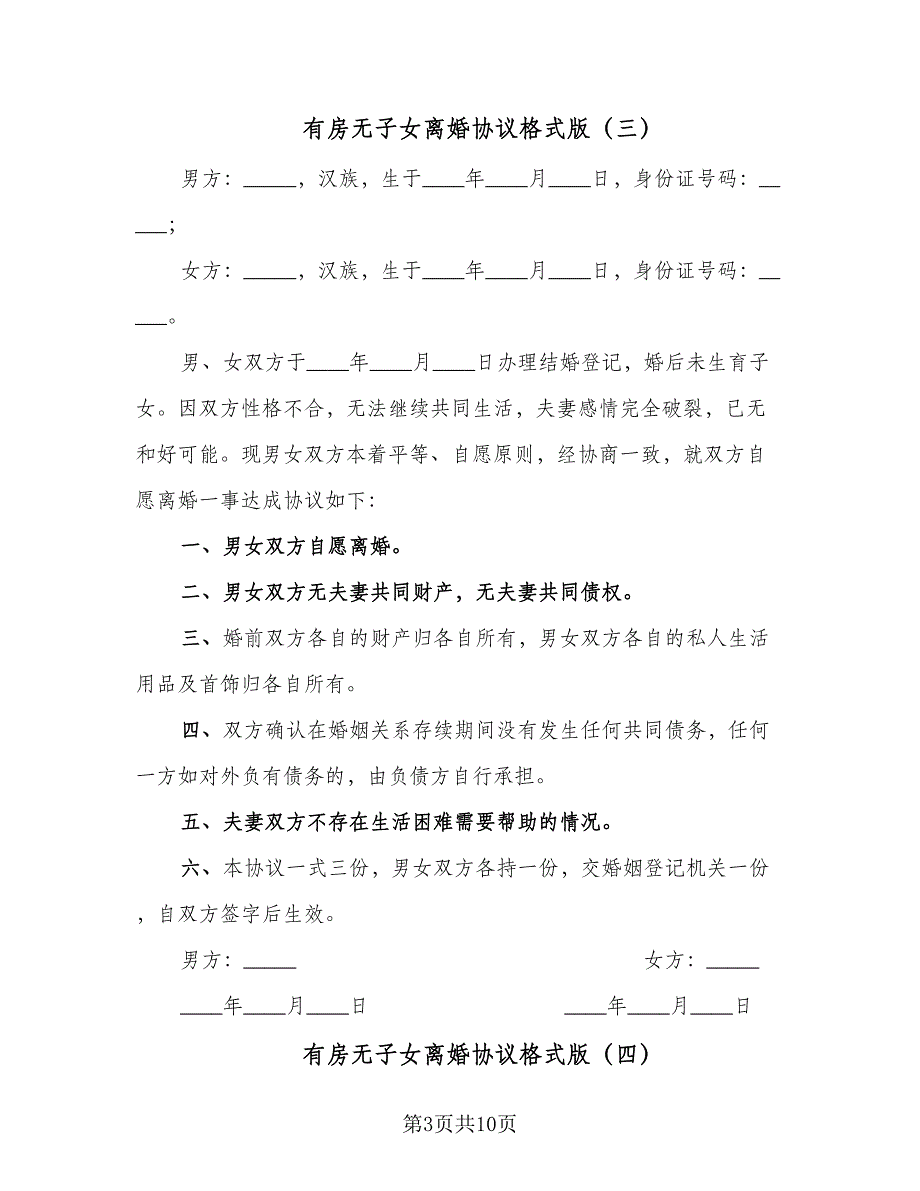 有房无子女离婚协议格式版（三）
男方：_____，汉族，生于____年____月____日，身份证号码：__
___；
女方：_____，汉族，生于____年____月____日，身份证号码：__
___。
男、女双方于____年____月____日办理结婚登记，婚后未生育子
女。因双方性格不合，无法继续共同生活，夫妻感情完全破裂，已无
和好可能。现男女双方本着平等、自愿原则，经协商一致，就双方自
愿离婚一事达成协议如下：
一、男女双方自愿离婚。
二、男女双方无夫妻共同财产，无夫妻共同债权。
三、婚前双方各自的财产归各自所有，男女双方各自的私人生活
用品及首饰归各自所有。
四、双方确认在婚姻关系存续期间没有发生任何共同债务，任何
一方如对外负有债务的，由负债方自行承担。
五、夫妻双方不存在生活困难需要帮助的情况。
六、本协议一式三份，男女双方各持一份，交婚姻登记机关一份
，自双方签字后生效。
男方：_____ 女方：_____
____年____月____日 ____年____月____日
有房无子女离婚协议格式版（四）
第3页共10页